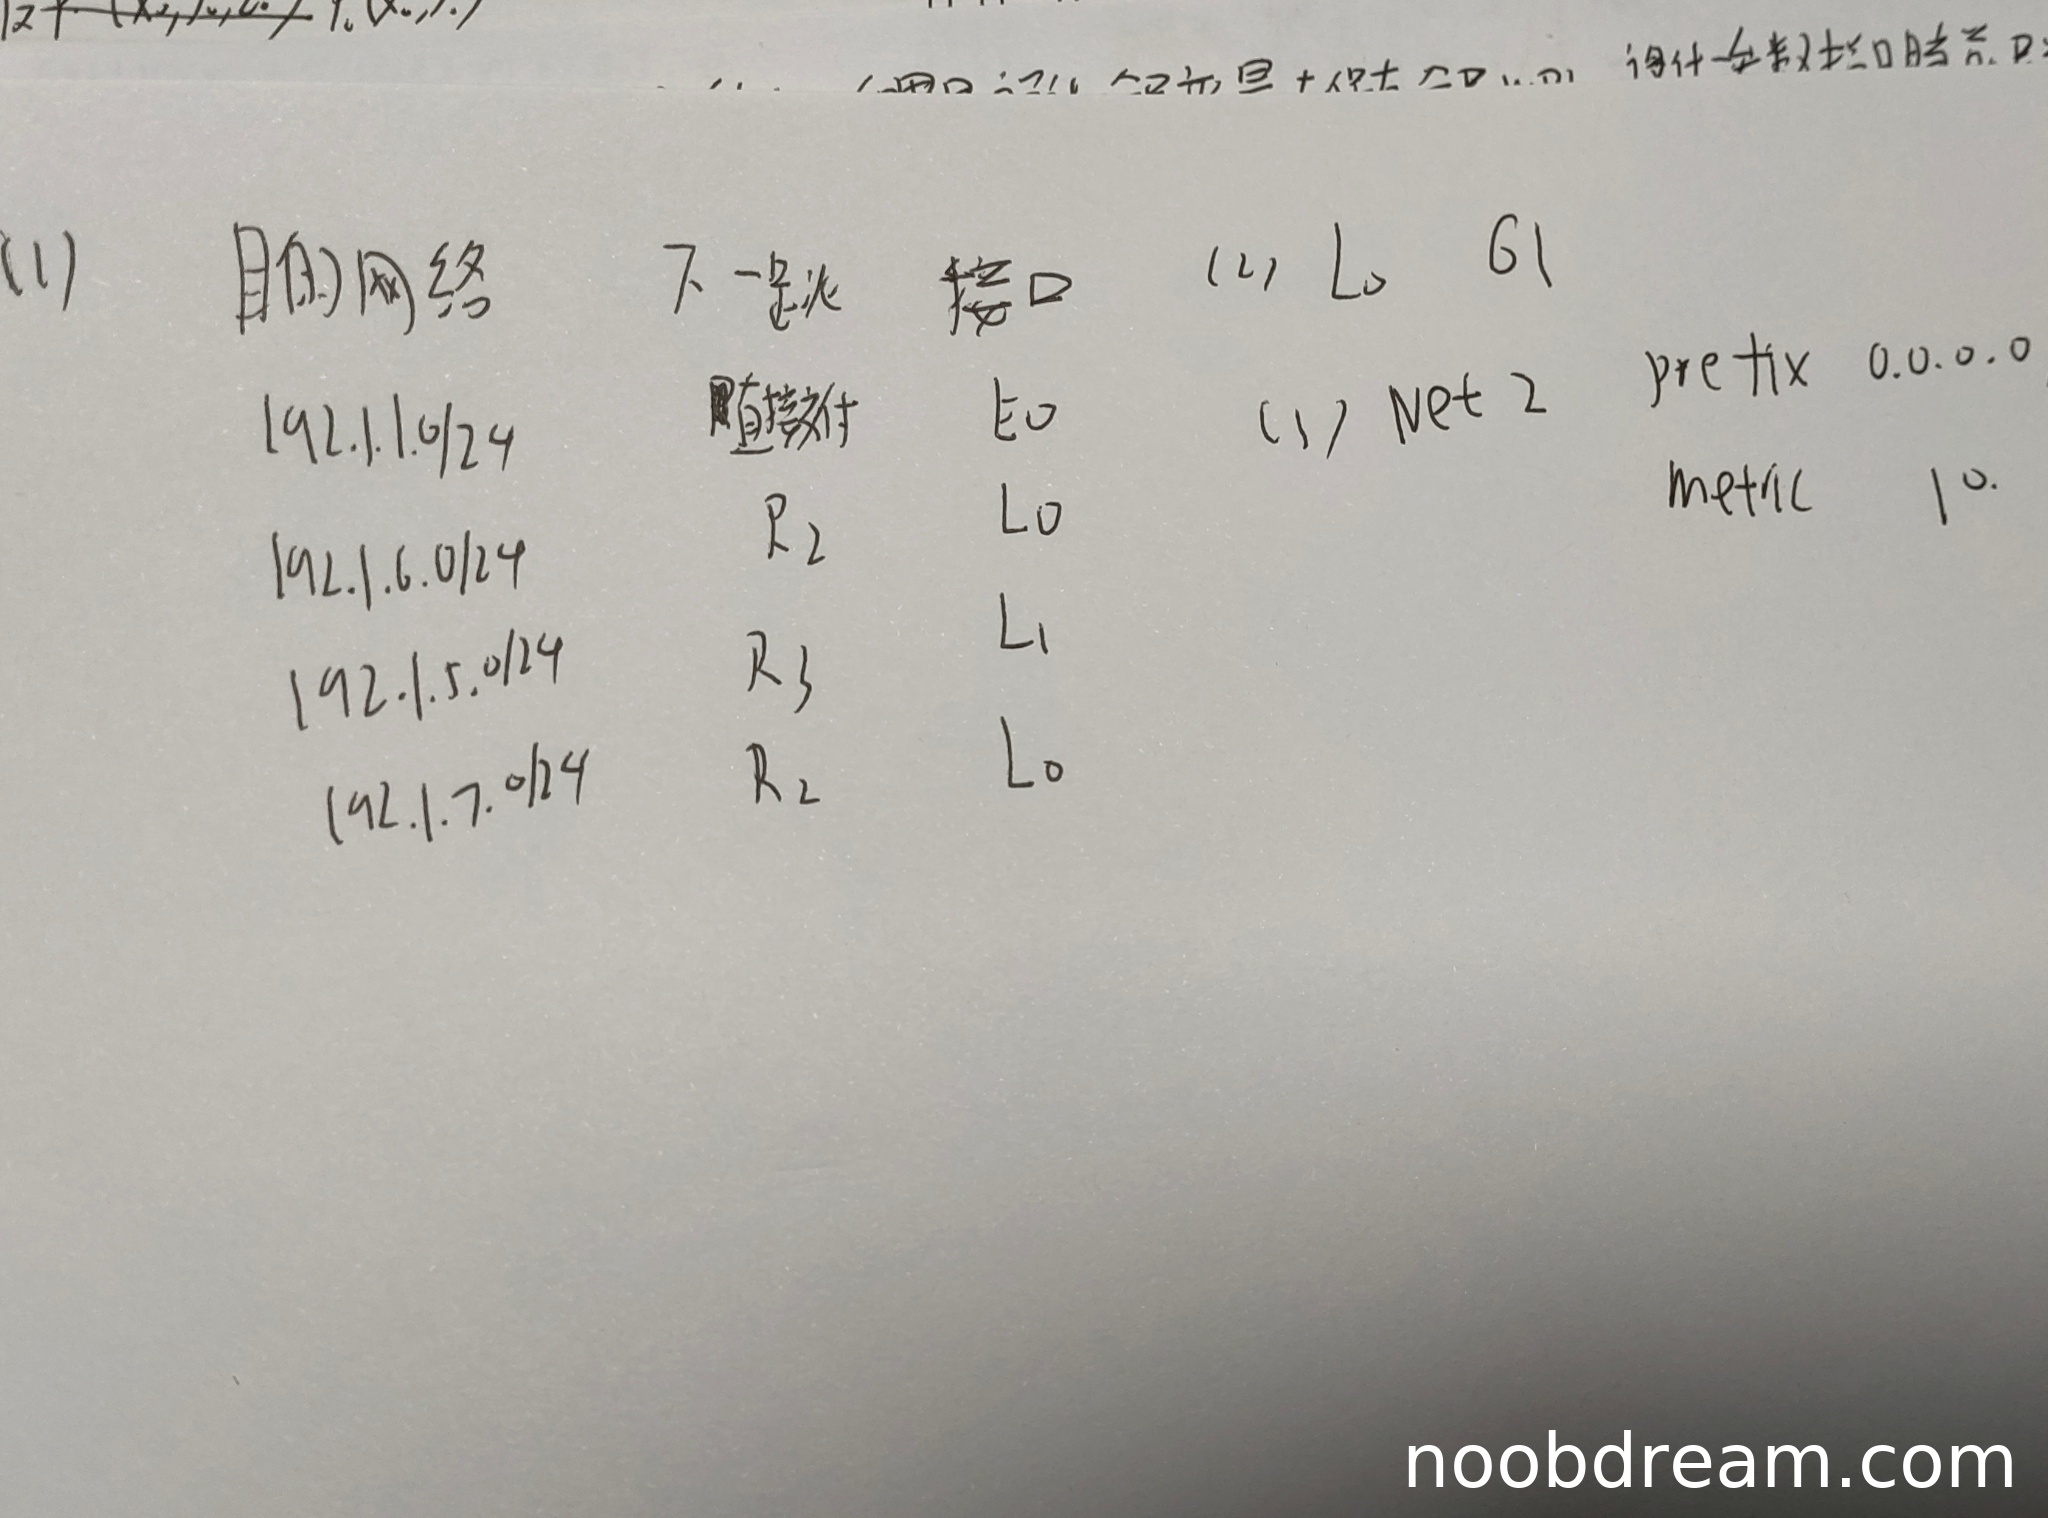 (1) 目的网络 下一跳 接口
192.1.1.0/24 直接交付 E0
192.1.6.0/24 R2 L0
192.1.5.0/24 R3 L1
192.1.7.0/24 R2 L0
(2) L0 61
(3) Net 2 prefix 0.0.0.0
metric 10.
noobdream.com